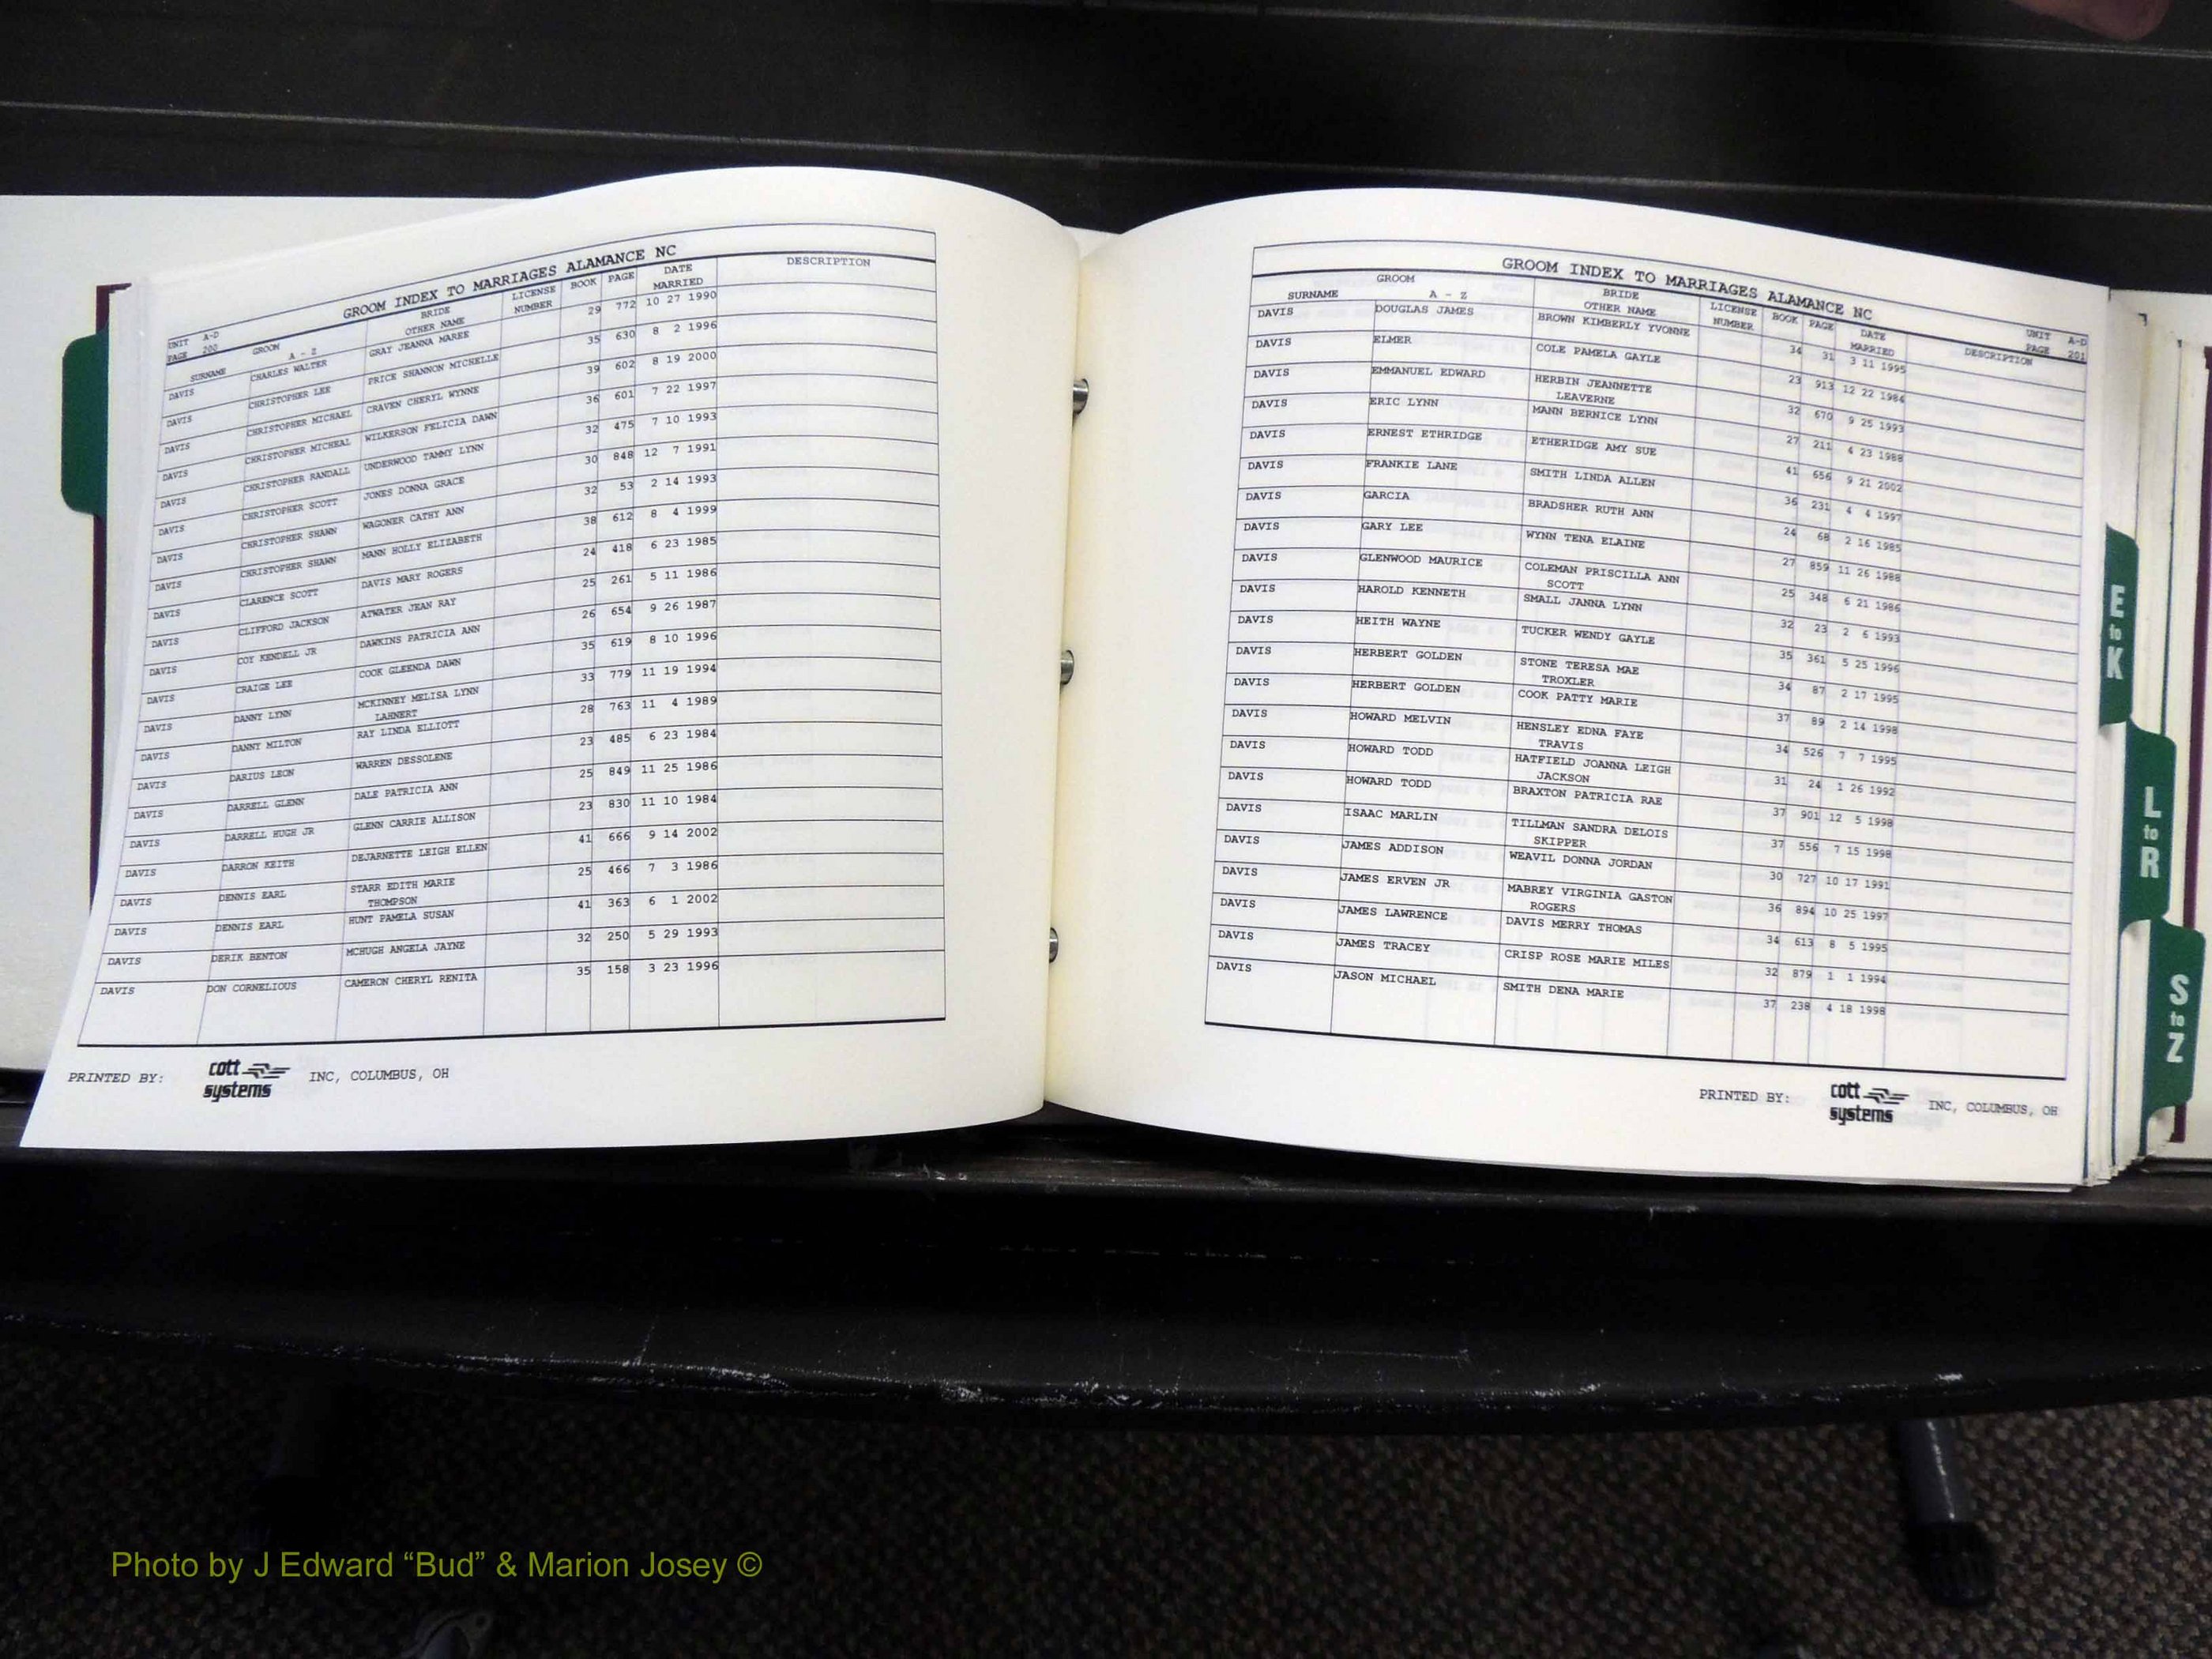 GROOM INDEX TO MARRIAGES ALAMANCE NC
UNIT A-D
PAGE 200
SURNAME GROOM A - Z BRIDE OTHER NAME LICENSE NUMBER BOOK PAGE DATE MARRIED DESCRIPTION
DAVIS CHARLES WALTER GRAY JEANNA MAREE 29 772 10 27 1990
DAVIS CHRISTOPHER LEE PRICE SHANNON MICHELLE 35 630 8 2 1996
DAVIS CHRISTOPHER MICHAEL CRAVEN CHERYL WYNNE 39 602 8 19 2000
DAVIS CHRISTOPHER MICHEAL WILKERSON FELICIA DAWN 36 601 7 22 1997
DAVIS CHRISTOPHER RANDALL UNDERWOOD TAMMY LYNN 32 475 7 10 1993
DAVIS CHRISTOPHER SCOTT JONES DONNA GRACE 30 848 12 7 1991
DAVIS CHRISTOPHER SHAWN WAGONER CATHY ANN 32 53 2 14 1993
DAVIS CHRISTOPHER SHAWN MANN HOLLY ELIZABETH 38 612 8 4 1999
DAVIS CLARENCE SCOTT DAVIS MARY ROGERS 24 418 6 23 1985
DAVIS CLIFFORD JACKSON ATWATER JEAN RAY 25 261 5 11 1986
DAVIS COY KENDELL JR DAWKINS PATRICIA ANN 26 654 9 26 1987
DAVIS CRAIGE LEE COOK GLEENDA DAWN 35 619 8 10 1996
DAVIS DANNY LYNN MCKINNEY MELISA LYNN 33 779 11 19 1994
LAHNERT
DAVIS DANNY MILTON RAY LINDA ELLIOTT 28 763 11 4 1989
DAVIS DARIUS LEON WARREN DESSOLENE 23 485 6 23 1984
DAVIS DARRELL GLENN DALE PATRICIA ANN 25 849 11 25 1986
DAVIS DARRELL HUGH JR GLENN CARRIE ALLISON 23 830 11 10 1984
DAVIS DARRON KEITH DEJARNETTE LEIGH ELLEN 41 666 9 14 2002
DAVIS DENNIS EARL STARR EDITH MARIE 25 466 7 3 1986
THOMPSON
DAVIS DENNIS EARL HUNT PAMELA SUSAN 41 363 6 1 2002
DAVIS DERIK BENTON MCHUGH ANGELA JAYNE 32 250 5 29 1993
DAVIS DON CORNELIOUS CAMERON CHERYL RENITA 35 158 3 23 1996
PRINTED BY: cott systems INC, COLUMBUS, OH
GROOM INDEX TO MARRIAGES ALAMANCE NC
UNIT A-D
PAGE 201
SURNAME GROOM A - Z BRIDE OTHER NAME LICENSE NUMBER BOOK PAGE DATE MARRIED DESCRIPTION
DAVIS DOUGLAS JAMES BROWN KIMBERLY YVONNE 34 31 3 11 1995
DAVIS ELMER COLE PAMELA GAYLE 23 913 12 22 1984
DAVIS EMMANUEL EDWARD HERBIN JEANNETTE 32 670 9 25 1993
LEAVERNE
DAVIS ERIC LYNN MANN BERNICE LYNN 27 211 4 23 1988
DAVIS ERNEST ETHRIDGE ETHERIDGE AMY SUE 41 656 9 21 2002
DAVIS FRANKIE LANE SMITH LINDA ALLEN 36 231 4 4 1997
DAVIS GARCIA BRADSHER RUTH ANN 24 68 2 16 1985
DAVIS GARY LEE WYNN TENA ELAINE 27 859 11 26 1988
DAVIS GLENWOOD MAURICE COLEMAN PRISCILLA ANN 25 348 6 21 1986
SCOTT
DAVIS HAROLD KENNETH SMALL JANNA LYNN 32 23 2 6 1993
DAVIS HEITH WAYNE TUCKER WENDY GAYLE 35 361 5 25 1996
DAVIS HERBERT GOLDEN STONE TERESA MAE 34 87 2 17 1995
TROXLER
DAVIS HERBERT GOLDEN COOK PATTY MARIE 37 89 2 14 1998
DAVIS HOWARD MELVIN HENSLEY EDNA FAYE 34 526 7 7 1995
TRAVIS
DAVIS HOWARD TODD HATFIELD JOANNA LEIGH 31 24 1 26 1992
JACKSON
DAVIS HOWARD TODD BRAXTON PATRICIA RAE 37 901 12 5 1998
DAVIS ISAAC MARLIN TILLMAN SANDRA DELOIS 37 556 7 15 1998
SKIPPER
DAVIS JAMES ADDISON WEAVIL DONNA JORDAN 30 727 10 17 1991
DAVIS JAMES ERVEN JR MABREY VIRGINIA GASTON 36 894 10 25 1997
ROGERS
DAVIS JAMES LAWRENCE DAVIS MERRY THOMAS 34 613 8 5 1995
DAVIS JAMES TRACEY CRISP ROSE MARIE MILES 32 879 1 1 1994
DAVIS JASON MICHAEL SMITH DENA MARIE 37 238 4 18 1998
PRINTED BY: cott systems INC, COLUMBUS, OH
E to K
L to R
S to Z
Photo by J Edward “Bud” & Marion Josey ©